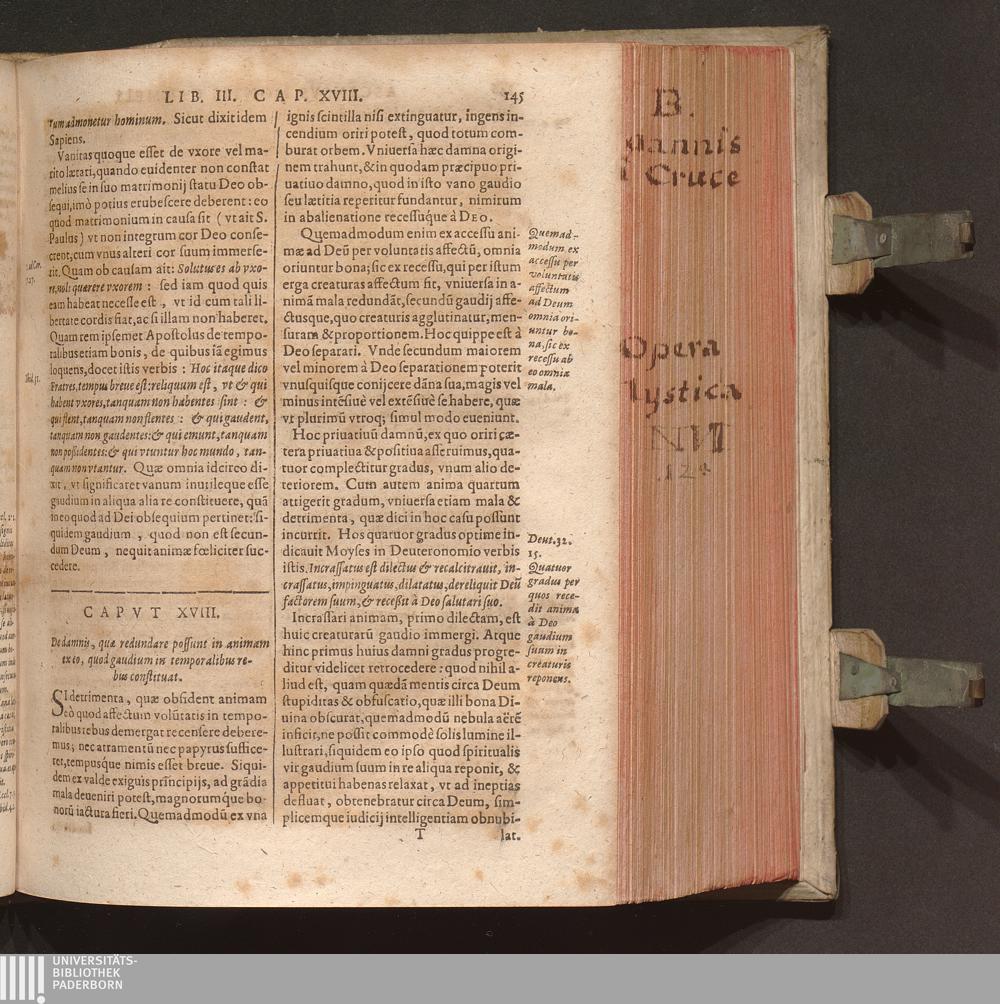 LIB. III. CAP. XVIII. 145
rum admonetur hominum. Sicut dixit idem
Sapiens.
Vanitas quoque esset de vxore vel ma-
rito lætari, quando euidenter non constat
melius se in suo matrimonij statu Deo ob-
sequi, imò potius erubescere deberent: eo
quod matrimonium in causa sit ( vt ait S.
Paulus ) vt non integrum cor Deo conse-
crent, cum vnus alteri cor suum immerse-
rit. Quam ob causam ait: Solutus es ab vxo-
re, noli quærere vxorem : sed iam quod quis
eam habeat necesse est , vt id cum tali li-
bertate cordis fiat, ac si illam non haberet.
Quam rem ipsemet Apostolus de tempo-
ralibus etiam bonis, de quibus iã egimus
loquens, docet istis verbis : Hoc itaque dico
Fratres, tempus breue est: reliquum est, vt & qui
habent vxores, tanquam non habentes sint : &
qui flent, tanquam non flentes : & qui gaudent,
tanquam non gaudentes: & qui emunt, tanquam
non possidentes: & qui vtuntur hoc mundo, tan-
quam non vtantur. Quæ omnia idcirco di-
xit, vt significaret vanum inutileque esse
gaudium in aliqua alia re constituere, quã
in eo quod ad Dei obsequium pertinet: si-
quidem gaudium , quod non est secun-
dum Deum , nequit animæ fœliciter suc-
cedere.
CAPVT XVIII.
De damnis, quæ redundare possunt in animam
ex eo, quod gaudium in temporalibus re-
bus constituat.
SI detrimenta, quæ obsident animam
eò quod affectum volũtatis in tempo-
ralibus rebus demergat recensere debere-
mus; nec atramentũ nec papyrus suffice-
ret, tempusque nimis esset breue. Siqui-
dem ex valde exiguis principijs, ad grãdia
mala deueniri potest, magnorumque bo-
norũ iactura fieri. Quemadmodũ ex vna
ignis scintilla nisi extinguatur, ingens in-
cendium oriri potest, quod totum com-
burat orbem. Vniuersa hæc damna origi-
nem trahunt, & in quodam præcipuo pri-
uatiuo damno, quod in isto vano gaudio
seu lætitia reperitur fundantur, nimirum
in abalienatione recessuque à DEO.
Quemadmodum enim ex accessu ani-
mæ ad Deũ per voluntatis affectũ, omnia
oriuntur bona; sic ex recessu, qui per istum
erga creaturas affectum fit, vniuersa in a-
nimã mala redundãt, secundũ gaudij affe-
ctusque, quo creaturis agglutinatur, men-
suram & proportionem. Hoc quippe est à
Deo separari. Vnde secundum maiorem
vel minorem à Deo separationem poterit
vnusquisque conijcere dãna sua, magis vel
minus intẽsiuè vel extẽsiuè se habere, quæ
vt plurimũ vtroq; simul modo eueniunt.
Hoc priuatiuũ damnũ, ex quo oriri cæ-
tera priuatiua & positiua asseruimus, qua-
tuor complectitur gradus, vnum alio de-
teriorem. Cum autem anima quartum
attigerit gradum, vniuersa etiam mala &
detrimenta, quæ dici in hoc casu possunt
incurrit. Hos quatuor gradus optime in-
dicauit Moyses in Deuteronomio verbis
istis. Incrassatus est dilectus & recalcitrauit, in-
crassatus, impinguatus, dilatatus, dereliquit Deũ
factorem suum, & recessit à Deo salutari suo.
Incrassari animam, primo dilectam, est
huic creaturarũ gaudio immergi. Atque
hinc primus huius damni gradus progre-
ditur videlicet retrocedere : quod nihil a-
liud est, quam quædã mentis circa Deum
stupiditas & obfuscatio, quæ illi bona Di-
uina obscurat, quemadmodũ nebula aërẽ
inficit, ne possit commodè solis lumine il-
lustrari, siquidem eo ipso quod spiritualis
vir gaudium suum in re aliqua reponit, &
appetitui habenas relaxat, vt ad ineptias
defluat, obtenebratur circa Deum, sim-
plicemque iudicij intelligentiam obnubi-
T lat.
Quemad-
modum ex
accessu per
voluntatis
affectum
ad Deum
omnia ori-
untur bo-
na, sic ex
recessu ab
eo omnia
mala.
Deut. 32.
15.
Quatuor
gradus per
quos rece-
dit anima
à Deo
gaudium
suum in
creaturis
reponens.
B.
oannis
Cruce
Opera
Mystica
UNIVERSITÄTS-
BIBLIOTHEK
PADERBORN